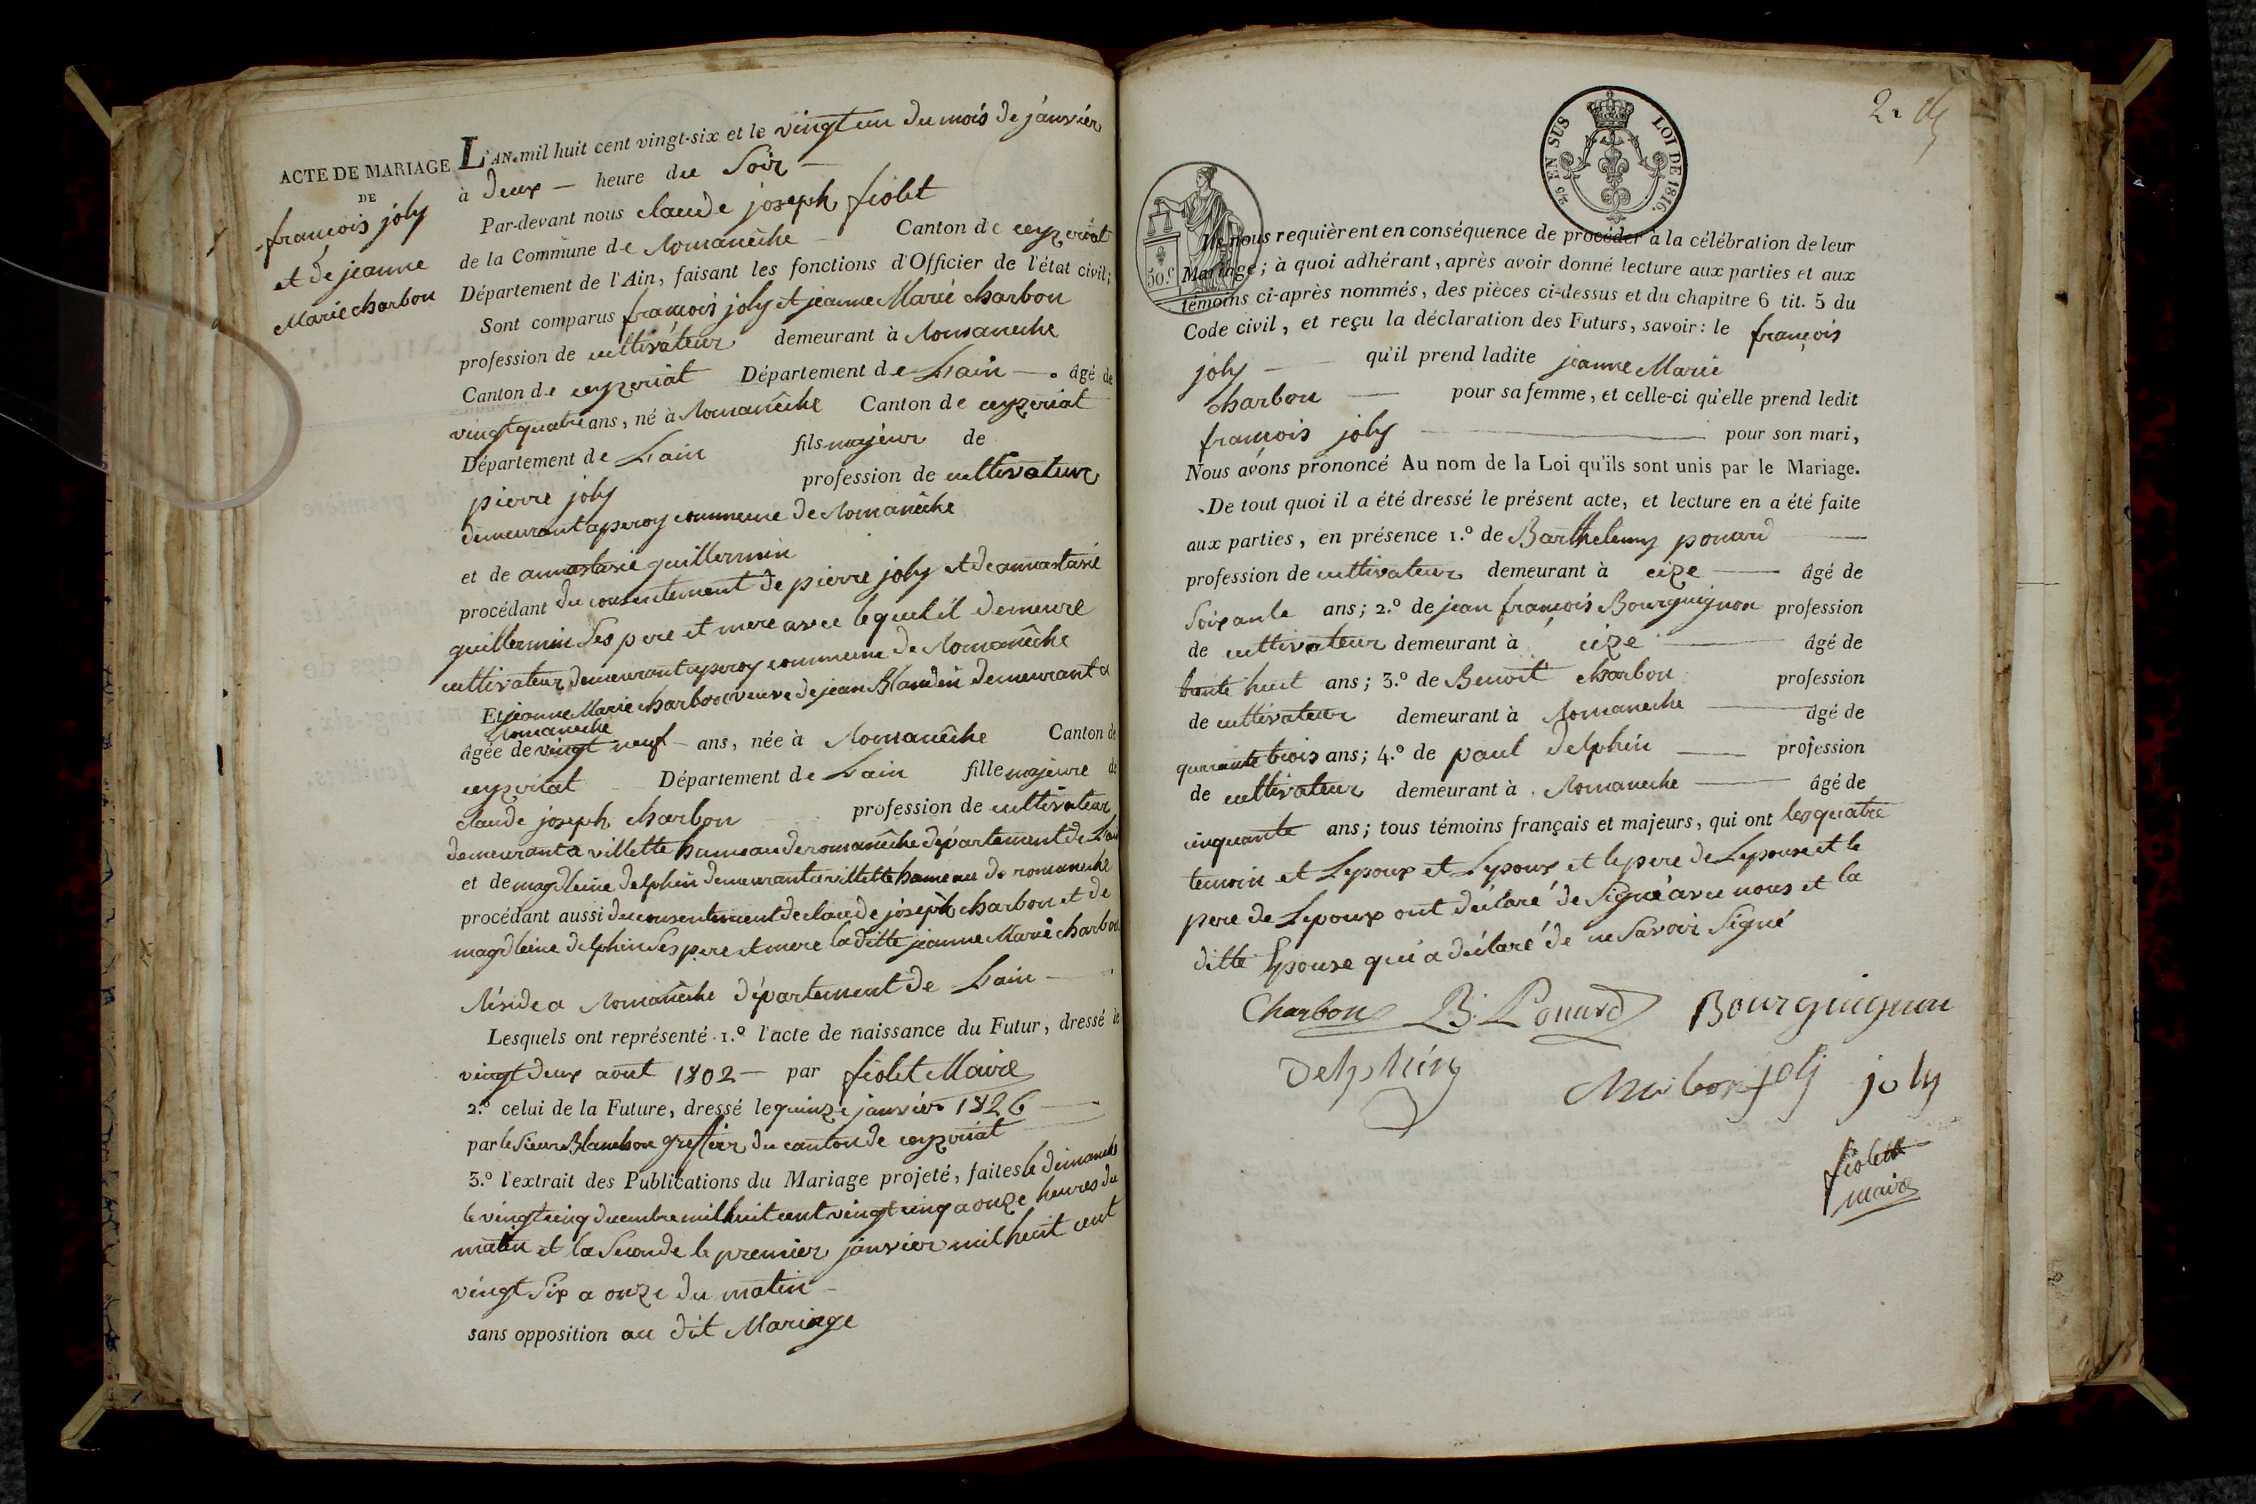 ACTE DE MARIAGE
DE
françois joly
et de jeanne
Marie charbon
L'AN mil huit cent vingt-six et le vingt un du mois de janvier
à deux — heure du Soir —
Par-devant nous claude joseph fiolet
de la Commune de Romanêche Canton de ceyzeriat
Département de l'Ain, faisant les fonctions d'Officier de l'état civil;
Sont comparus françois joly et jeanne Marie charbon
profession de cultivateur demeurant à Romaneche
Canton de ceyzeriat Département de Lain — . âgé de
vingt quatre ans, né à Romanêche Canton de ceyzeriat
Département de Lain fils majeur de
pierre joly profession de cultivateur
demeurant a peroy commune de Romanêche
et de annastasie guillermin
procédant du consentement de pierre joly et de annastasie
guillermin Ses pere et mere avec lequel il demeure
cultivateur demeurant a peroy commune de Romanêche
Et jeanne Marie charbon veuve de jean Blandin demeurant a
Romaneche
âgée de vingt neuf — ans, née à Romanêche Canton de
ceyzeriat Département de Lain fille majeure de
claude joseph charbon profession de cultivateur
demeurant a villette hameau de romanêche département de Lain
et de magdleine delphin demeurant a villette hameau de romaneche
procédant aussi du consentement de claude joseph charbon et de
magdleine delphin Ses pere et mere la ditte jeanne Marie charbon
Réside a Romanêche département de Lain —
Lesquels ont représenté 1.º l'acte de naissance du Futur, dressé le
vingt deux aout 1802 — par fiolet Maire
2.º celui de la Future, dressé le quinze janvier 1826 —
par le Sieur Blanchon greffier du canton de ceyzeriat
3.º l'extrait des Publications du Mariage projeté, faites le dimanche
le vingt cinq decembre mil huit cent vingt cinq a onze heures du
matin et la Seconde le premier janvier mil huit cent
vingt Six a onze du matin —
sans opposition au dit Mariage
2.
2/5 EN SUS LOI DE 1816.
50.c
Ils nous requièrent en conséquence de procéder à la célébration de leur
Mariage; à quoi adhérant, après avoir donné lecture aux parties et aux
témoins ci-après nommés, des pièces ci-dessus et du chapitre 6 tit. 5 du
Code civil, et reçu la déclaration des Futurs, savoir: le françois
joly — qu'il prend ladite jeanne Marie
charbon — pour sa femme, et celle-ci qu'elle prend ledit
françois joly — pour son mari,
Nous avons prononcé Au nom de la Loi qu'ils sont unis par le Mariage.
De tout quoi il a été dressé le présent acte, et lecture en a été faite
aux parties, en présence 1.º de Barthelemy ponard —
profession de cultivateur demeurant à cize — âgé de
Soixante ans; 2.º de jean françois Bourguignon profession
de cultivateur demeurant à cize — âgé de
trente huit ans; 3.º de Benoit charbon profession
de cultivateur demeurant à Romaneche — âgé de
quarante trois ans; 4.º de paul delphin — profession
de cultivateur demeurant à Romaneche — âgé de
cinquante ans; tous témoins français et majeurs, qui ont les quatre
temoin et Lepoux et Lepoux et le pere de Lepouse et le
pere de Lepoux ont déclaré de Signé avec nous et la
ditte Epouse qui a déclaré de ne Savoir Signé
Charbon B. Ponard Bourguignon
Delphin Charbon joly joly
fiolet
maire